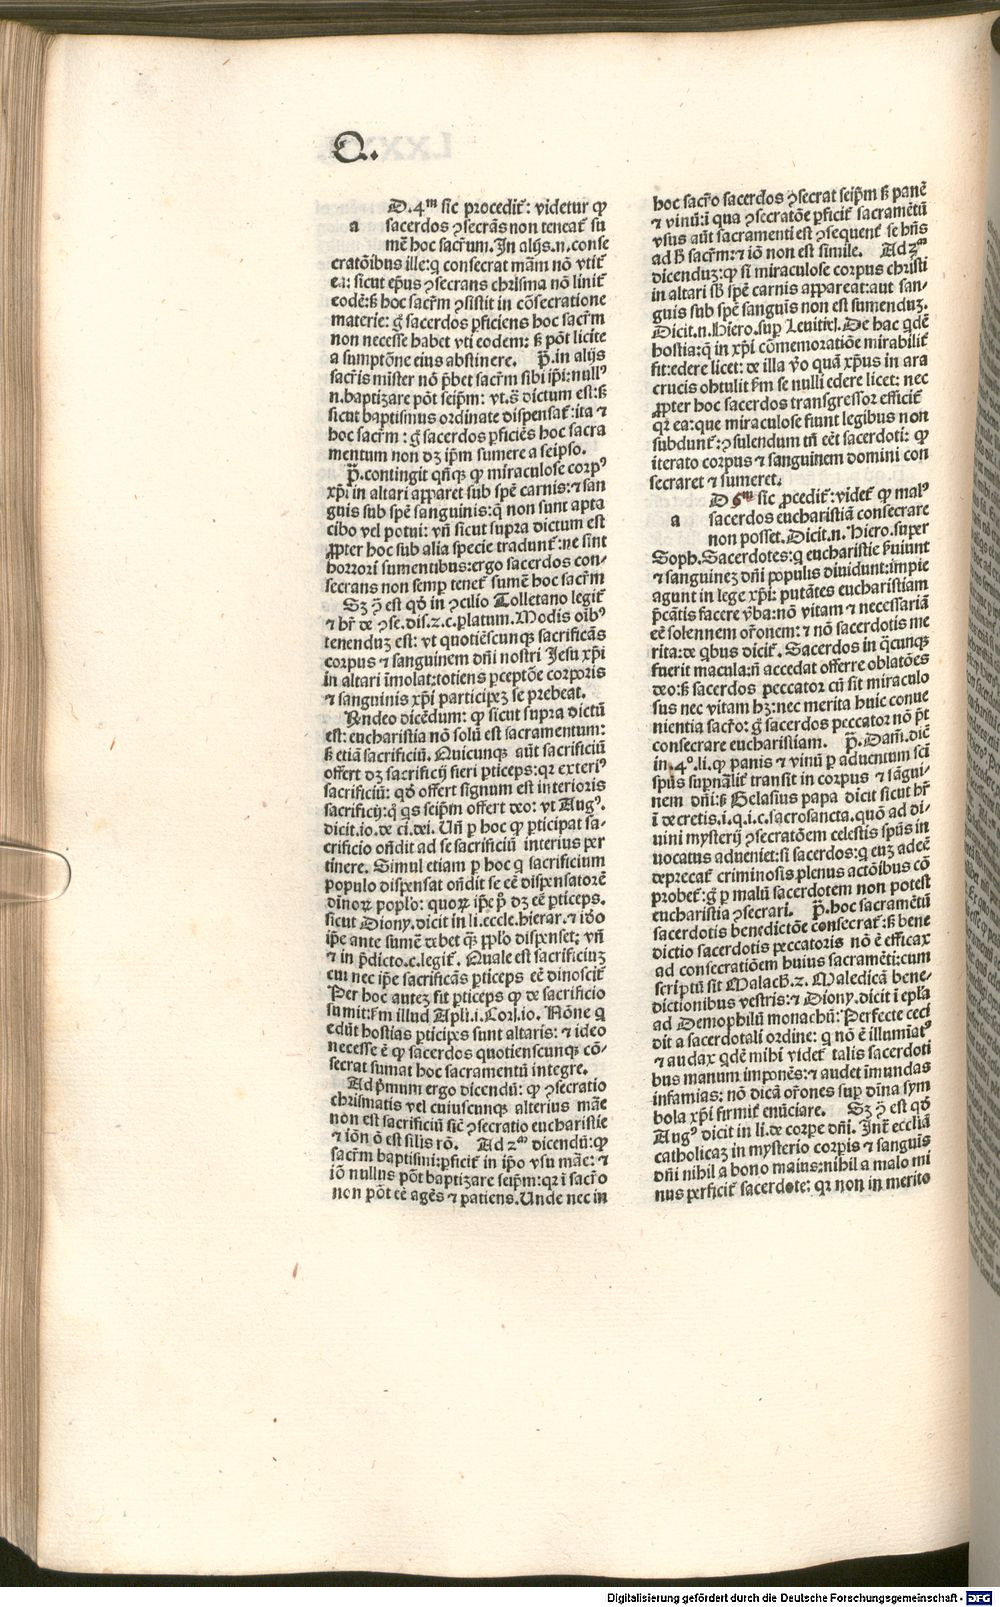 Q.
D.4ᵐ sic procedit᷑: videtur ꝙ
a sacerdos ꝯsecrãs non teneat᷑ su
mẽ hoc sacr̃um. In alijs.n.conse
cratõibus ille:q consecrat mãm nõ vtit᷑
ea: sicut ep̃us ꝯsecrans chrisma nõ linit᷑
eodẽ:ß hoc sacr̃m ꝯsistit in cõsecratione
materie: g̃ sacerdos ꝑficiens hoc sacr̃m
non necesse habet vti eodem: ß põt licite
a sumptõne eius abstinere. P̃.in alijs
sacr̃is mister nõ p̃bet sacr̃m sibi ip̃i:null᷒
n.baptizare põt seip̃m: vt.s̃ dictum est:ß
sicut baptismus ordinate dispensat᷑:ita ⁊
hoc sacr̃m: g̃ sacerdos ꝑficiẽs hoc sacra
mentum non dꝫ ip̃m sumere a seipso.
P̃.contingit qñqꝫ ꝙ miraculose corp᷒
xp̃i in altari apparet sub spẽ carnis:⁊ san
guis sub spẽ sanguinis:q̃ non sunt apta
cibo vel potui: vñ sicut supra dictum est
ꝓpter hoc sub alia specie tradunt᷑:ne sint
horrori sumentibus:ergo sacerdos con-
secrans non semꝑ tenet᷑ sumẽ hoc sacr̃m
Sꝫ ꝯ̃ est qd̃ in ꝯcilio Tolletano legit᷑
⁊ hr̃ de ꝯse.dis.2.c.ꝑlatum.Modis oĩb᷒
tenenduꝫ est: vt quotiẽscunqꝫ sacrificãs
corpus ⁊ sanguinem dñi nostri Jesu xp̃i
in altari ĩmolat:totiens ꝑceptõe corporis
⁊ sanguinis xp̃i participeꝫ se prebeat.
Rñdeo dicẽdum: ꝙ sicut supra dictũ
est: eucharistia nõ solũ est sacramentum:
ß etiã sacrificiũ. Quicunqꝫ aũt sacrificiũ
offert dꝫ sacrificij fieri ꝑticeps:qꝛ exteri᷒
sacrificiũ: qd̃ offert signum est interioris
sacrificij:q̃ q̃s seip̃m offert deo: vt Aug᷒.
dicit.io.de ci.dei. Uñ ꝑ hoc ꝙ ꝑticipat sa-
crificio oñdit ad se sacrificiũ interius per
tinere. Simul etiam ꝑ hoc q sacrificium
populo dispensat oñdit se eẽ dispensatorẽ
diĩnoꝝ popl̃o: quoꝝ ip̃e p̃ dꝫ eẽ ꝑticeps.
sicut Diony.dicit in li.eccle.hierar.⁊ iõo
ip̃e ante sumẽ debet q̃ꝫ ppl̃o dispenset: vñ
⁊ in p̃dicto.c.legit᷑. Quale est sacrificiuꝫ
cui nec ip̃e sacrificãs ꝑticeps eẽ dinoscit᷑
Per hoc auteꝫ fit ꝑticeps ꝙ de sacrificio
sumit:ẜm illud Apl̃i.i.Cor̃.io. Nõne q
edũt hostias ꝑticipes sunt altaris: ⁊ ideo
necesse ẽ ꝙ sacerdos quotienscunqꝫ cõ-
secrat sumat hoc sacramentũ integre.
Ad p̃mum ergo dicendũ: ꝙ ꝯsecratio
chrismatis vel cuiuscunqꝫ alterius mãe
non est sacrificiũ sic̃ ꝯsecratio eucharistie
⁊ iõ nõ est silis rõ. Ad 2ᵐ dicendũ:ꝙ
sacr̃m baptismi:ꝑficit᷑ in ip̃o vsu mãe: ⁊
iõ nullus põt baptizare seip̃m:qꝛ ĩ sacr̃o
non põt eẽ agẽs ⁊ patiens.Unde nec in
hoc sacr̃o sacerdos ꝯsecrat seip̃m ß panẽ
⁊ vinũ:ĩ qua ꝯsecratõe ꝑficit᷑ sacramẽtũ
vsus aũt sacramenti est ꝯsequent᷑ se hñs
ad h̃ sacr̃m:⁊ iõ non est simile. Ad 3ᵐ
dicenduꝫ:ꝙ si miraculose corpus christi
in altari sb̃ spẽ carnis appareat:aut san-
guis sub spẽ sanguis non est sumenduꝫ.
Dicit.n.Hiero.suꝑ Leuitic̃. De hac qdẽ
hostia:q̃ in xp̃i cõmemoratiõe mirabilit᷑
fit:edere licet: de illa ṽo quã xp̃us in ara
crucis obtulit ẜm se nulli edere licet: nec
ꝓpter hoc sacerdos transgressor efficit᷑
qꝛ ea:que miraculose fiunt legibus non
subdunt᷑: ꝯsulendum tñ eẽt sacerdoti: ꝙ
iterato corpus ⁊ sanguinem domini con
secraret ⁊ sumeret.
D 6ᵐ sic ꝓcedit᷑: videt᷑ ꝙ mal᷒
a sacerdos eucharistiã consecrare
non posset. Dicit.n.Hiero.super
Soph.Sacerdotes:q eucharistie ẽuiunt
⁊ sanguineꝫ dñi populis diuidunt:impie
agunt in lege xp̃i: putãtes eucharistiam
p̃cãtis facere ṽba:nõ vitam ⁊ necessariã
eẽ solennem or̃onem: ⁊ nõ sacerdotis me
rita:de qbus dicit᷑. Sacerdos in q̃cunqꝫ
fuerit macula:ñ accedat offerre oblatões
deo:ß sacerdos peccator cũ sit miraculo
sus nec vitam hꝫ:nec merita huic conue
nientia sacr̃o: g̃ sacerdos peccator nõ p̃t
consecrare eucharistiam. P̃.Dam̃.dic̃
in.4°.li.ꝙ panis ⁊ vinũ ꝑ aduentum sc̃i
sp̃us suꝑnãlit᷑ transit in corpus ⁊ sãgui-
nem dñi:ß Gelasius papa dicit sicut hr̃
ĩ decretis.i.q.i.c.sacrosancta.quõ ad di-
uini mysterij ꝯsecratõem celestis sp̃us in
uocatus adueniet:si sacerdos:q euꝫ adeẽ
deprecat᷑ criminosis plenus actõibus cõ
probet᷑: g̃ ꝑ malũ sacerdotem non potest
eucharistia ꝯsecrari. P̃.hoc sacramẽtũ
sacerdotis benedictõe consecrat᷑:ß bene
dictio sacerdotis peccatoris nõ ẽ efficax
ad consecratiõem huius sacramẽti:cum
scriptũ sit Malach̃.2. Maledicã bene-
dictionibus vestris:⁊ Diony.dicit ĩ epl̃a
ad Demophilũ monachũ: Perfecte ceci
dit a sacerdotali ordine: q nõ ẽ illumĩat᷒
⁊ audax qdẽ mihi videt᷑ talis sacerdoti
bus manum imponẽs:⁊ audet ĩmundas
infamias: nõ dicã or̃ones suꝑ diĩna sym
bola xp̃i firmit᷑ enũciare. Sꝫ ꝯ̃ est qd̃
Aug᷒ dicit in li.de corꝑe dñi. Int̃ eccliã
catholicaꝫ in mysterio corꝑis ⁊ sanguis
dñi nihil a bono maius:nihil a malo mi
nus perficit᷑ sacerdote: qꝛ non in merito
Digitalisierung gefördert durch die Deutsche Forschungsgemeinschaft - DFG